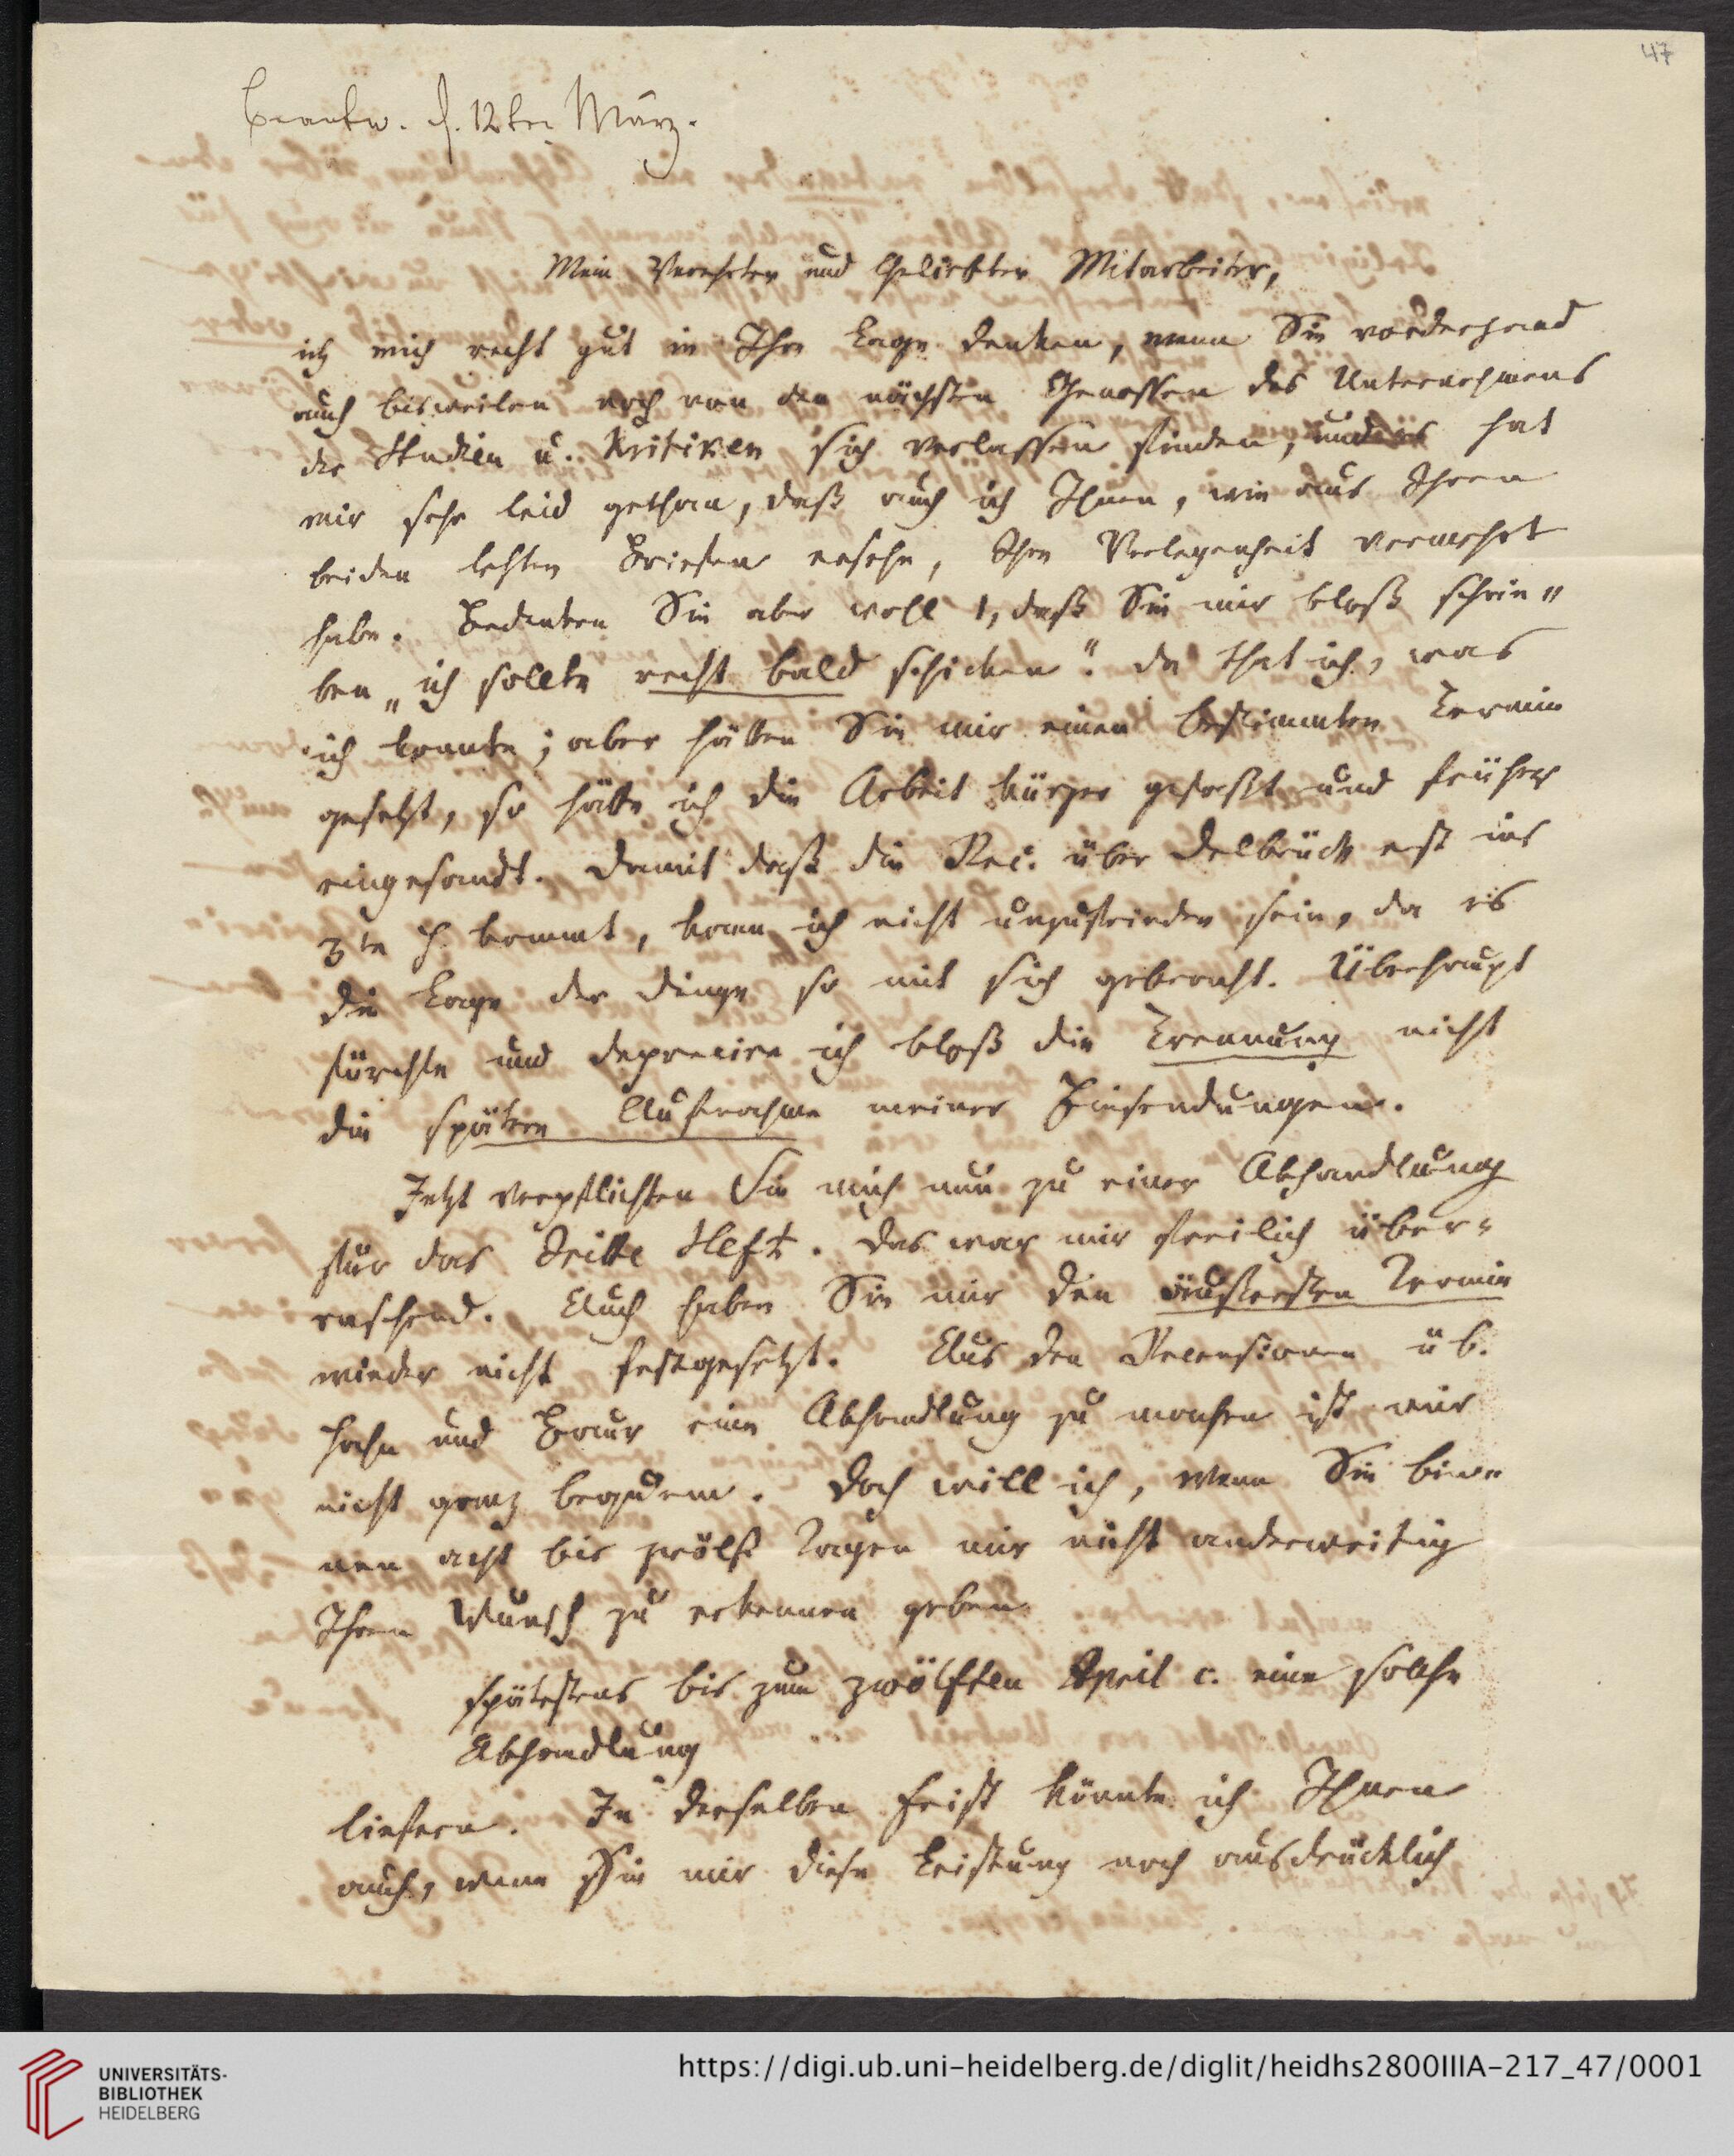 47
Beantw. d. 12ten März.
Mein Verehrter und Geliebter Mitarbeiter,
ich mich recht gut in Ihre Lage denken, wenn Sie vorderhand
auch bisweilen noch von den nächsten Genossen des Unternehmens
der Studien u. Kritiken sich verlassen finden, und es hat
mir sehr leid gethan, daß auch ich Ihnen, wie aus Ihren
beiden letzten Briefen ersehe, Ihre Verlegenheit vermehrt
habe. Bedenken Sie aber wohl 1, daß Sie mir bloß schrie„
ben „ich sollte recht bald schicken“. Da that ich, was
ich konnte; aber hätten Sie mir einen bestimmten Termin
gesetzt, so hätte ich die Arbeit kürzer gefaßt und früher
eingesandt. Damit daß die Rec. über Delbrück erst ins
3te H. kommt, kann ich nicht unzufrieden sein, da es
die Lage der Dinge so mit sich gebracht. Überhaupt
fürchte und deprecire ich bloß die Trennung nicht
die spätere Aufnahme meiner Einsendungen.
Jetzt verpflichten Sie mich nun zu einer Abhandlung
für das dritte Heft. Das war mir freilich über-
raschend. Auch haben Sie mir den äußersten Termin
wieder nicht festgesetzt. Aus den Recensionen üb.
Hahn und Baur eine Abhandlung zu machen ist mir
nicht ganz bequem. Doch will ich, wenn Sie bin-
nen acht bis zwölf Tagen mir nicht anderweitig
Ihren Wunsch zu erkennen geben
spätestens bis zum zwölften April c. eine solche
Abhandlung
liefern. In derselben Frist könnte ich Ihnen
auch, wenn Sie mir diese Leistung noch ausdrücklich
UNIVERSITÄTS-
BIBLIOTHEK
HEIDELBERG
https://digi.ub.uni-heidelberg.de/diglit/heidhs2800IIIA-217_47/0001